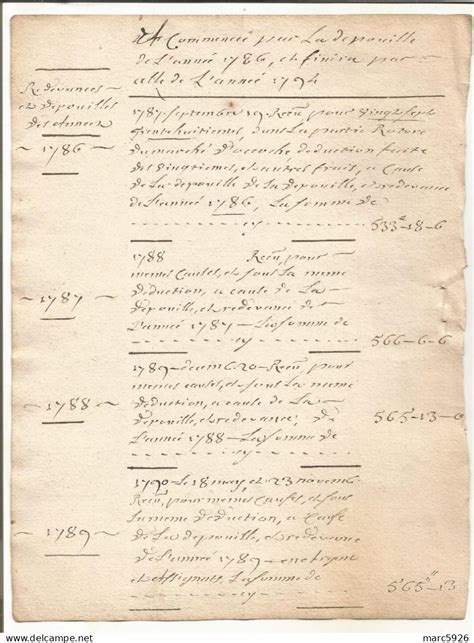 Commencé par La depouille
de L'année 1786, et finira par
celle de L'année 1794
Redevances
et depouilles
des années
1787. Septembre 19 Reçu pour Vingt sept
huitiemes, dans La partie Roture
du marché D'occoche deduction faite
des vingtiemes, et autres frais, a Cause
de La depouille de La depouille, et redevance
de L'année 1786, La somme de
~ 1786 ~
533-18-6
1788 Reçu, pour
memes Causes, et sous La meme
deduction, a cause de La
depouille, et redevance de
L'année 1787 - La somme de
~ 1787 ~
566-6-6
1789 - decemb. 20 - Reçu, pour
memes causes, et sous La meme
deduction, a cause de La
depouille, et redevance, de
L'année 1788 - La somme de
~ 1788 ~
565-13-0
1790 - Le 18 may, et 23 novemb.
Reçu, pour memes Causes, et sous
La meme deduction, a Cause
de La depouille, et redevance
de L'année 1789 - en argent
et assignats, La somme de
~ 1789 ~
565"-13
delcampe.net
marc5926